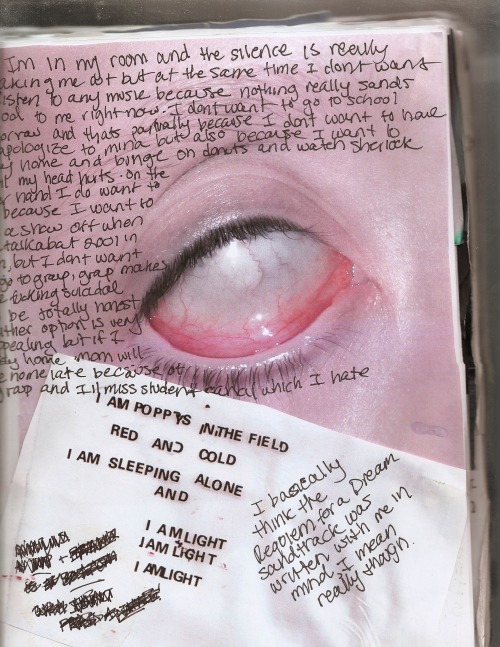 I'm in my room and the silence is really
aking me out but at the same time I dont want
listen to any music because nothing really sands
ood to me right now. I dont want to go to school
orrow and thats partially because I dont want to have
apologize to mina but also because I want to
y home and binge on donuts and watch sherlock
my head hurts. on the
r hand I do want to
because I want to
a show off when
talkabat 2001 in
, but I dont want
go to group. grap makes
e fucking suicidal
be totally honst
ther option is very
pealing but if I
ay home mom will
e home late because of
grap and I'll miss student canal which I hate
I AM POPPYS IN THE FIELD
RED AND COLD
I AM SLEEPING ALONE
AND
I AM LIGHT
I AM LIGHT
I AM LIGHT
I basically
think the
Requiem for a Dream
soundtrack was
written with me in
mind. I mean
really though.